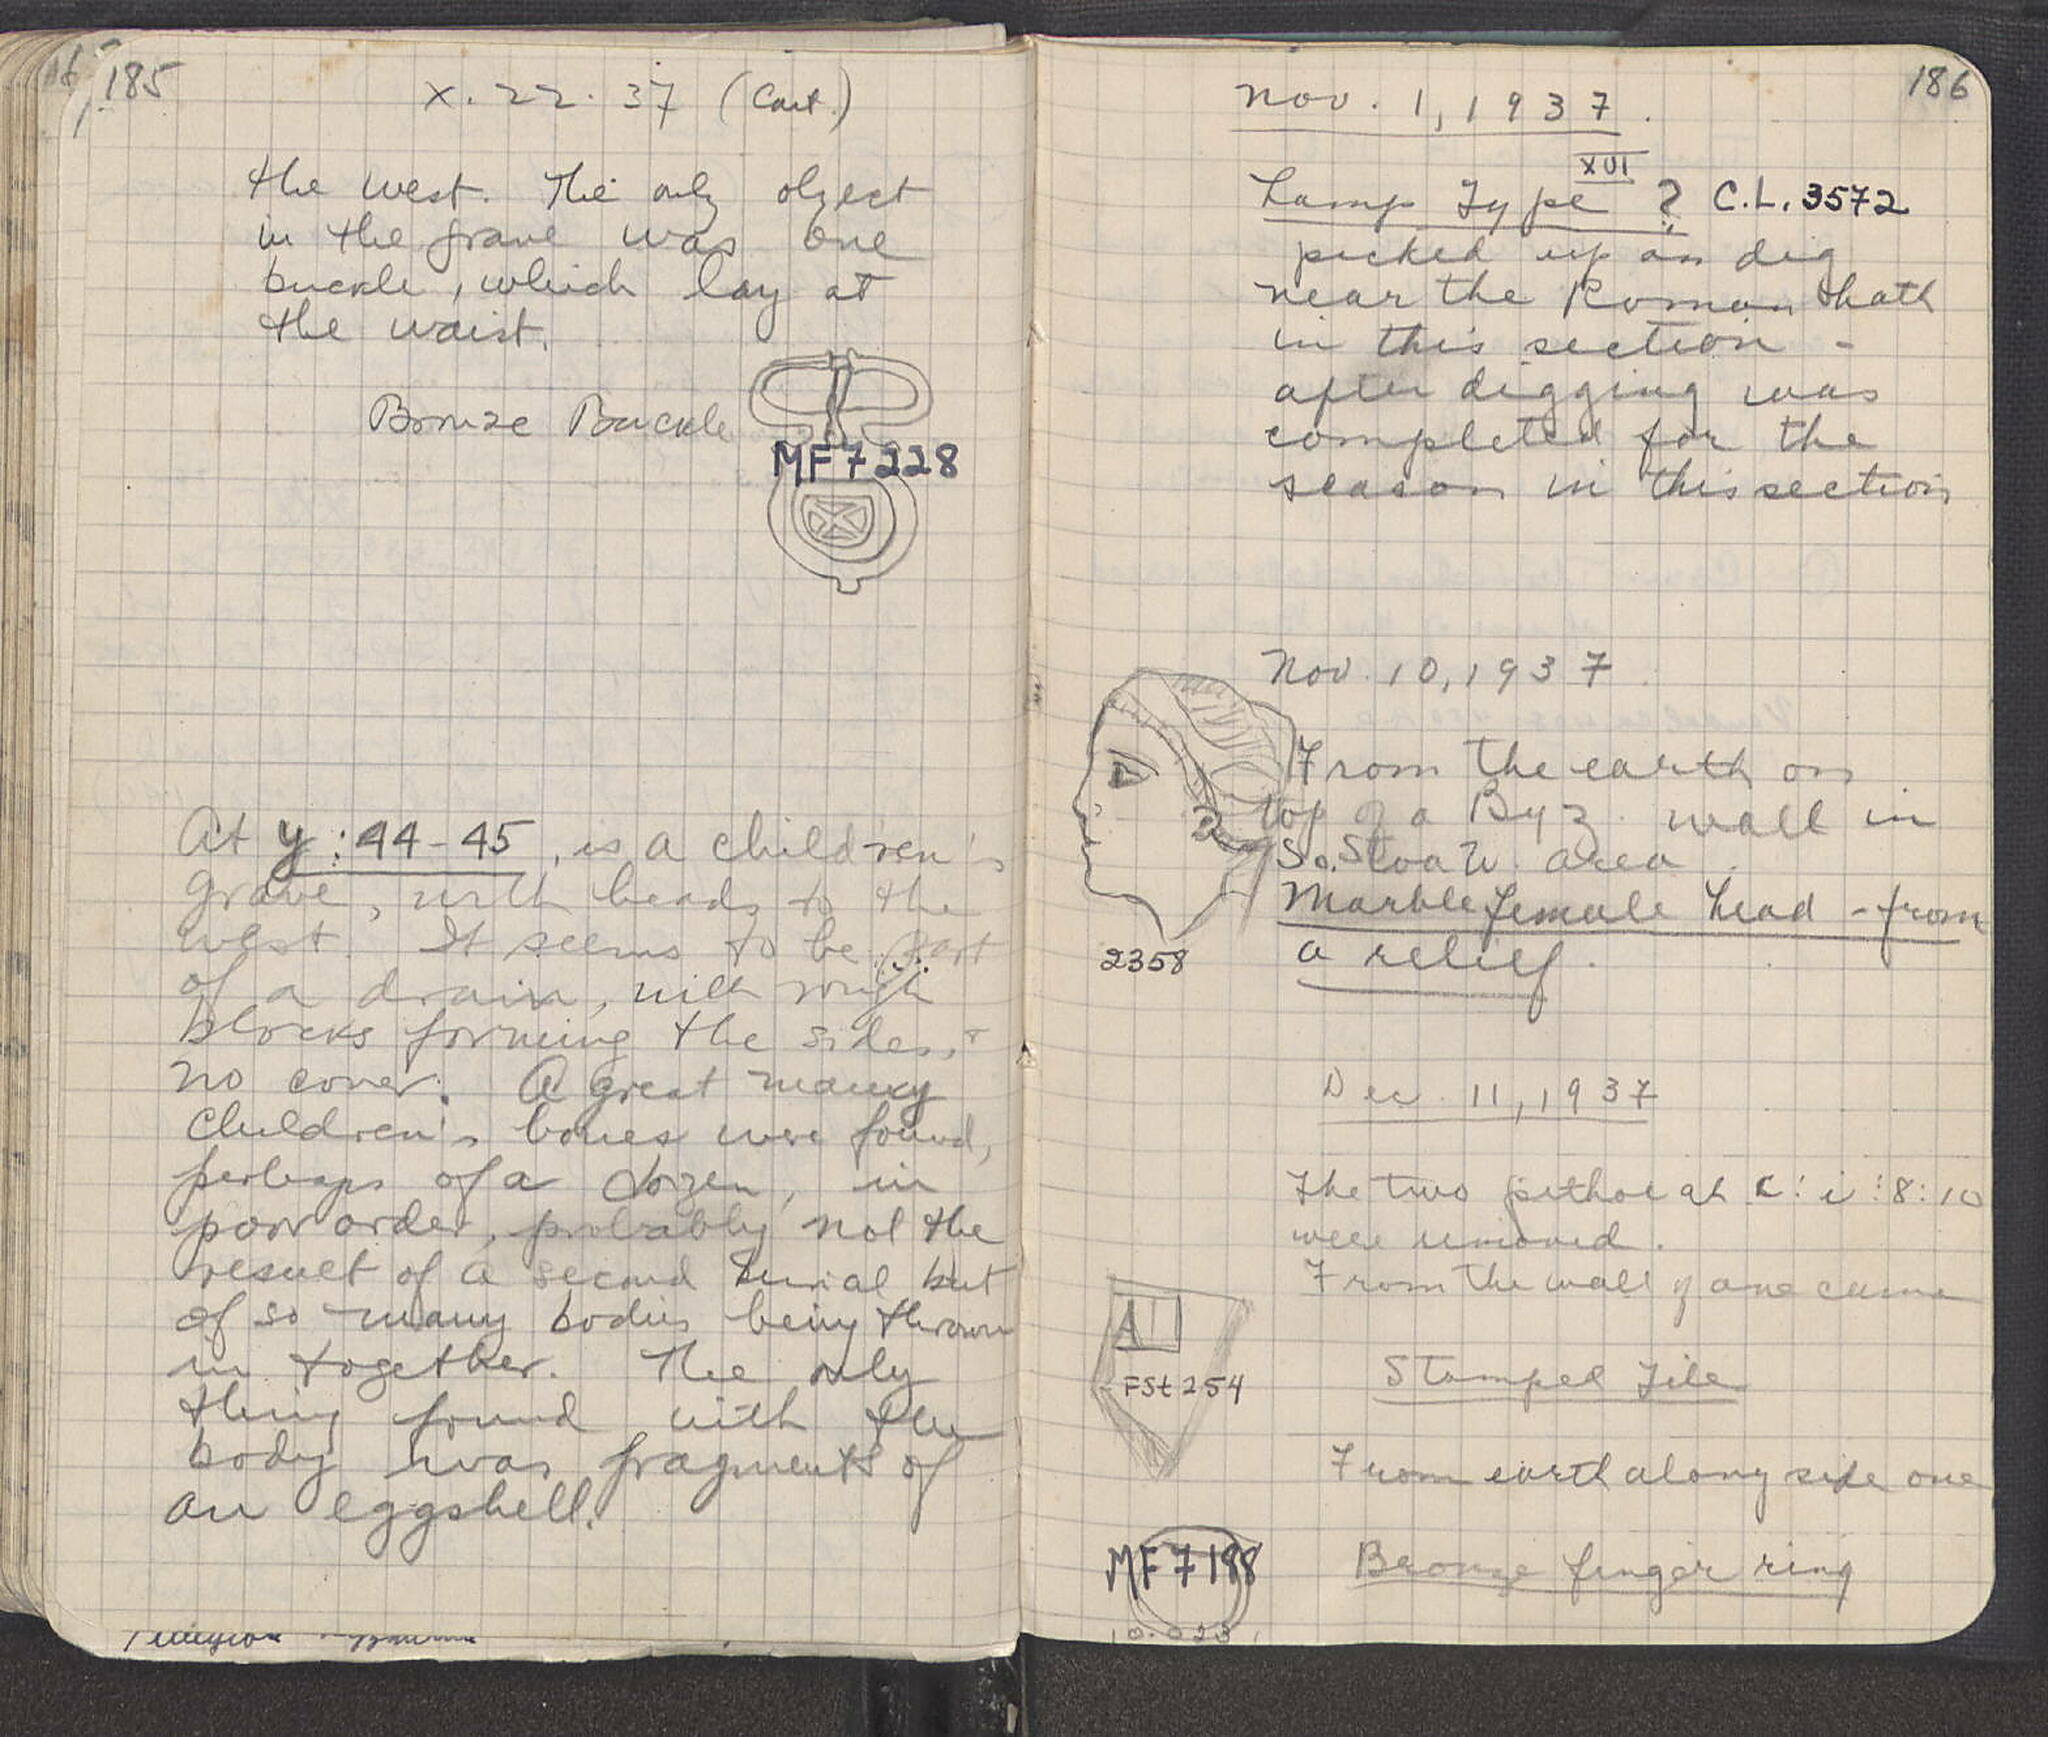 185
X. 22. 37 (Cont.)
the west. The only object
in the grave was one
buckle, which lay at
the waist.
Bronze Buckle
MF 7228
At y: 44-45, is a children's
grave, with heads to the
west. It seems to be part
of a drain, with rough
blocks forming the sides, +
no cover. A great many
children's bones were found,
perhaps of a dozen, in
poor order, probably not the
result of a second burial but
of so many bodies being thrown
in together. The only
thing found with the
body was fragments of
an eggshell.
186
Nov. 1, 1937.
XVI
Lamp Type ? C.L. 3572
picked up on dig
near the Roman bath
in this section -
after digging was
completed for the
season in this section
Nov. 10, 1937.
From the earth on
top of a Byz. wall in
So. Stoa W. area.
Marble female head - from
a relief.
2358
Dec. 11, 1937
The two pithoi at
were removed.
From the wall of one came
A
FSt 254
Stamped Tile
From earth along side one
MF 7188
Bronze finger ring
0.023